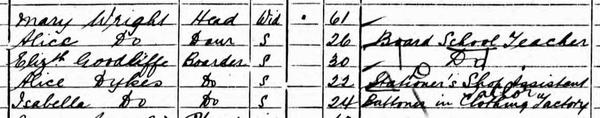 Mary Wright Head Wid 61
Alice Do Daur S 26 Board School Teacher
Elizth Goodliffe Boarder S 30 Do
Alice Dykes Do S 22 Stationer's Shop Assistant
Isabella Do Do S 24 in Clothing Factory